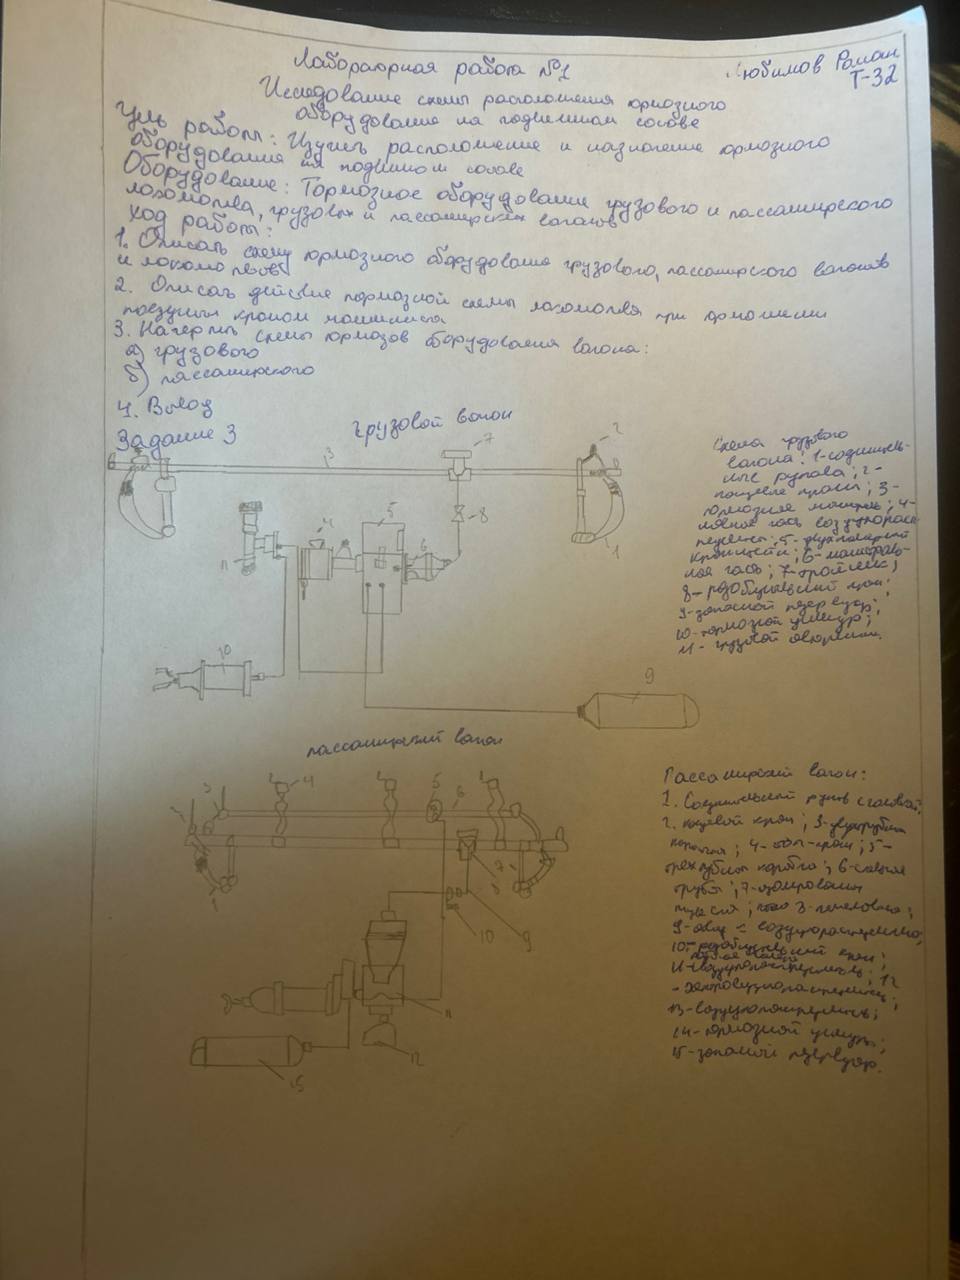 Лабораторная работа №1
Любимов Роман
Т-32
Исследование схемы расположения тормозного
оборудования на подвижном составе
Цель работы: Изучить расположение и назначение тормозного
оборудования на подвижном составе
Оборудование: Тормозное оборудование грузового и пассажирского
локомотива, грузовых и пассажирских вагонов
Ход работы:
1. Описать схему тормозного оборудования грузового, пассажирского вагонов
и локомотивов
2. Описать действие тормозной схемы локомотива при торможении
поездным краном машиниста
3. Начертить схемы тормозов оборудования вагона:
а) грузового
б) пассажирского
4. Вывод
Задание 3
грузовой вагон
3
7
2
8
1
4
5
6
11
10
9
Схема грузового
вагона: 1-соединитель-
ные рукава; 2-
концевые краны; 3-
тормозная магистраль; 4-
главная часть воздухорасп
5-двухкамерный
6-магистраль-
ная часть; 7-тройник;
8-разобщительный кран;
9-запасной резервуар;
10-тормозной цилиндр;
11-грузовой авторежим.
пассажирский вагон
3
4
5
6
7
1
8
10
9
11
12
15
Пассажирский вагон:
1. Соединительный рукав с головкой;
2. концевой кран; 3-двухтрубная
4-стоп-кран; 5-
трехтрубная коробка; 6-стальная
труба; 7-изолированная
9-отвод к воздухораспределителю;
10-разобщительный кран;
12
13-воздухораспределитель;
14-тормозной цилиндр;
15-запасной резервуар.